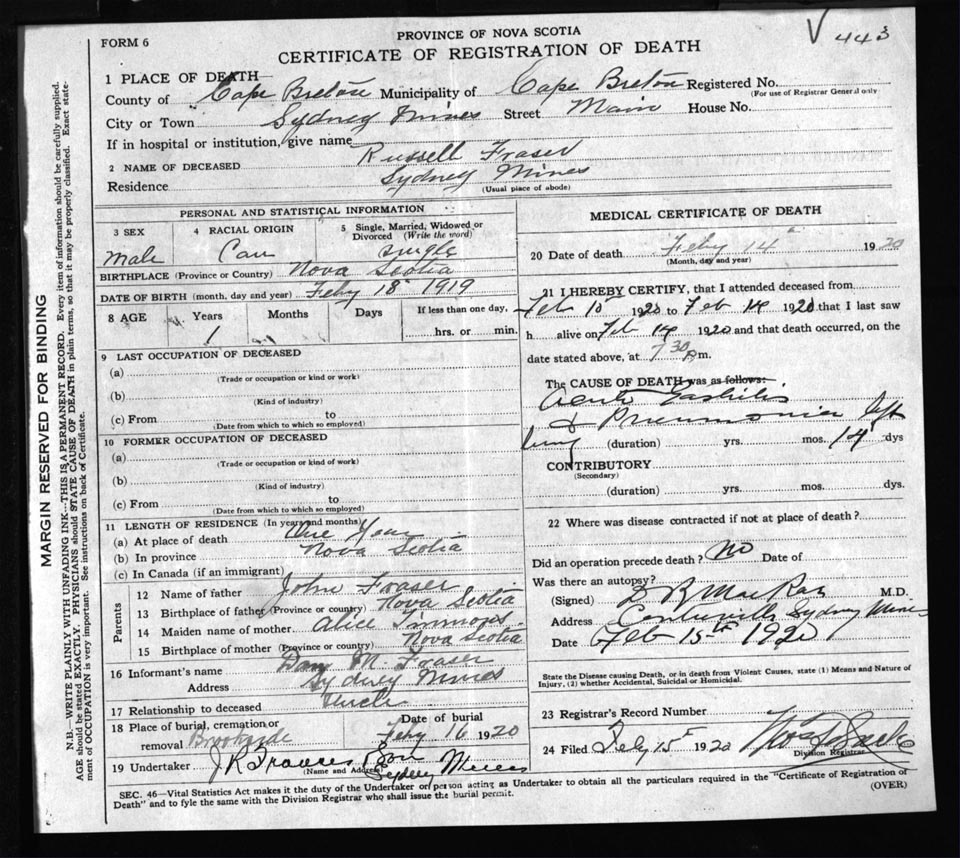 V 443
FORM 6
PROVINCE OF NOVA SCOTIA
CERTIFICATE OF REGISTRATION OF DEATH
1 PLACE OF DEATH
County of Cape Breton Municipality of Cape Breton Registered No.
(For use of Registrar General only)
City or Town Sydney Mines Street Main House No.
If in hospital or institution, give name
2 NAME OF DECEASED Russell Fraser
Residence Sydney Mines
(Usual place of abode)
PERSONAL AND STATISTICAL INFORMATION
3 SEX 4 RACIAL ORIGIN 5 Single, Married, Widowed or Divorced (Write the word)
Male Can Single
BIRTHPLACE (Province or Country) Nova Scotia
DATE OF BIRTH (month, day and year) Feby 18 1919
8 AGE Years Months Days If less than one day,
1 hrs. or min.
9 LAST OCCUPATION OF DECEASED
(a)
(Trade or occupation or kind or work)
(b)
(Kind of industry)
(c) From to
(Date from which to which so employed)
10 FORMER OCCUPATION OF DECEASED
(a)
(Trade or occupation or kind of work)
(b)
(Kind of industry)
(c) From to
(Date from which to which so employed)
11 LENGTH OF RESIDENCE (In years and months)
(a) At place of death One Year
(b) In province Nova Scotia
(c) In Canada (if an immigrant)
Parents
12 Name of father John Fraser
13 Birthplace of father (Province or country) Nova Scotia
14 Maiden name of mother Alice
15 Birthplace of mother (Province or country) Nova Scotia
16 Informant's name Dan M. Fraser
Address Sydney Mines
17 Relationship to deceased Uncle
18 Place of burial, cremation or removal Brookside Date of burial Feby 16 1920
19 Undertaker J R
(Name and Address) Sydney Mines
MEDICAL CERTIFICATE OF DEATH
20 Date of death Feby 14 1920
(Month, day and year)
21 I HEREBY CERTIFY, that I attended deceased from
Feb 10 1920 to Feb 14 1920 that I last saw
h alive on Feb 14 1920 and that death occurred, on the
date stated above, at 7 30 p.m.
The CAUSE OF DEATH was as follows:
Acute
& Pneumonia left
lung (duration) yrs. mos. 14 dys
CONTRIBUTORY
(Secondary)
(duration) yrs. mos. dys.
22 Where was disease contracted if not at place of death?
Did an operation precede death? No Date of
Was there an autopsy?
(Signed) D R MacRae M.D.
Address Sydney Mines
Date Feb 15th 1920
State the Disease causing Death, or in death from Violent Causes, state (1) Means and Nature of
Injury, (2) whether Accidental, Suicidal or Homicidal.
23 Registrar's Record Number
24 Filed 1920
Division Registrar
SEC. 46—Vital Statistics Act makes it the duty of the Undertaker or person acting as Undertaker to obtain all the particulars required in the "Certificate of Registration of
Death" and to fyle the same with the Division Registrar who shall issue the burial permit.
(OVER)
MARGIN RESERVED FOR BINDING
N.B.—WRITE PLAINLY WITH UNFADING INK—THIS IS A PERMANENT RECORD. Every item of information should be carefully supplied.
AGE should be stated EXACTLY. PHYSICIANS should STATE CAUSE OF DEATH in plain terms, so that it may be properly classified. Exact state-
ment of OCCUPATION is very important. See instructions on back of Certificate.